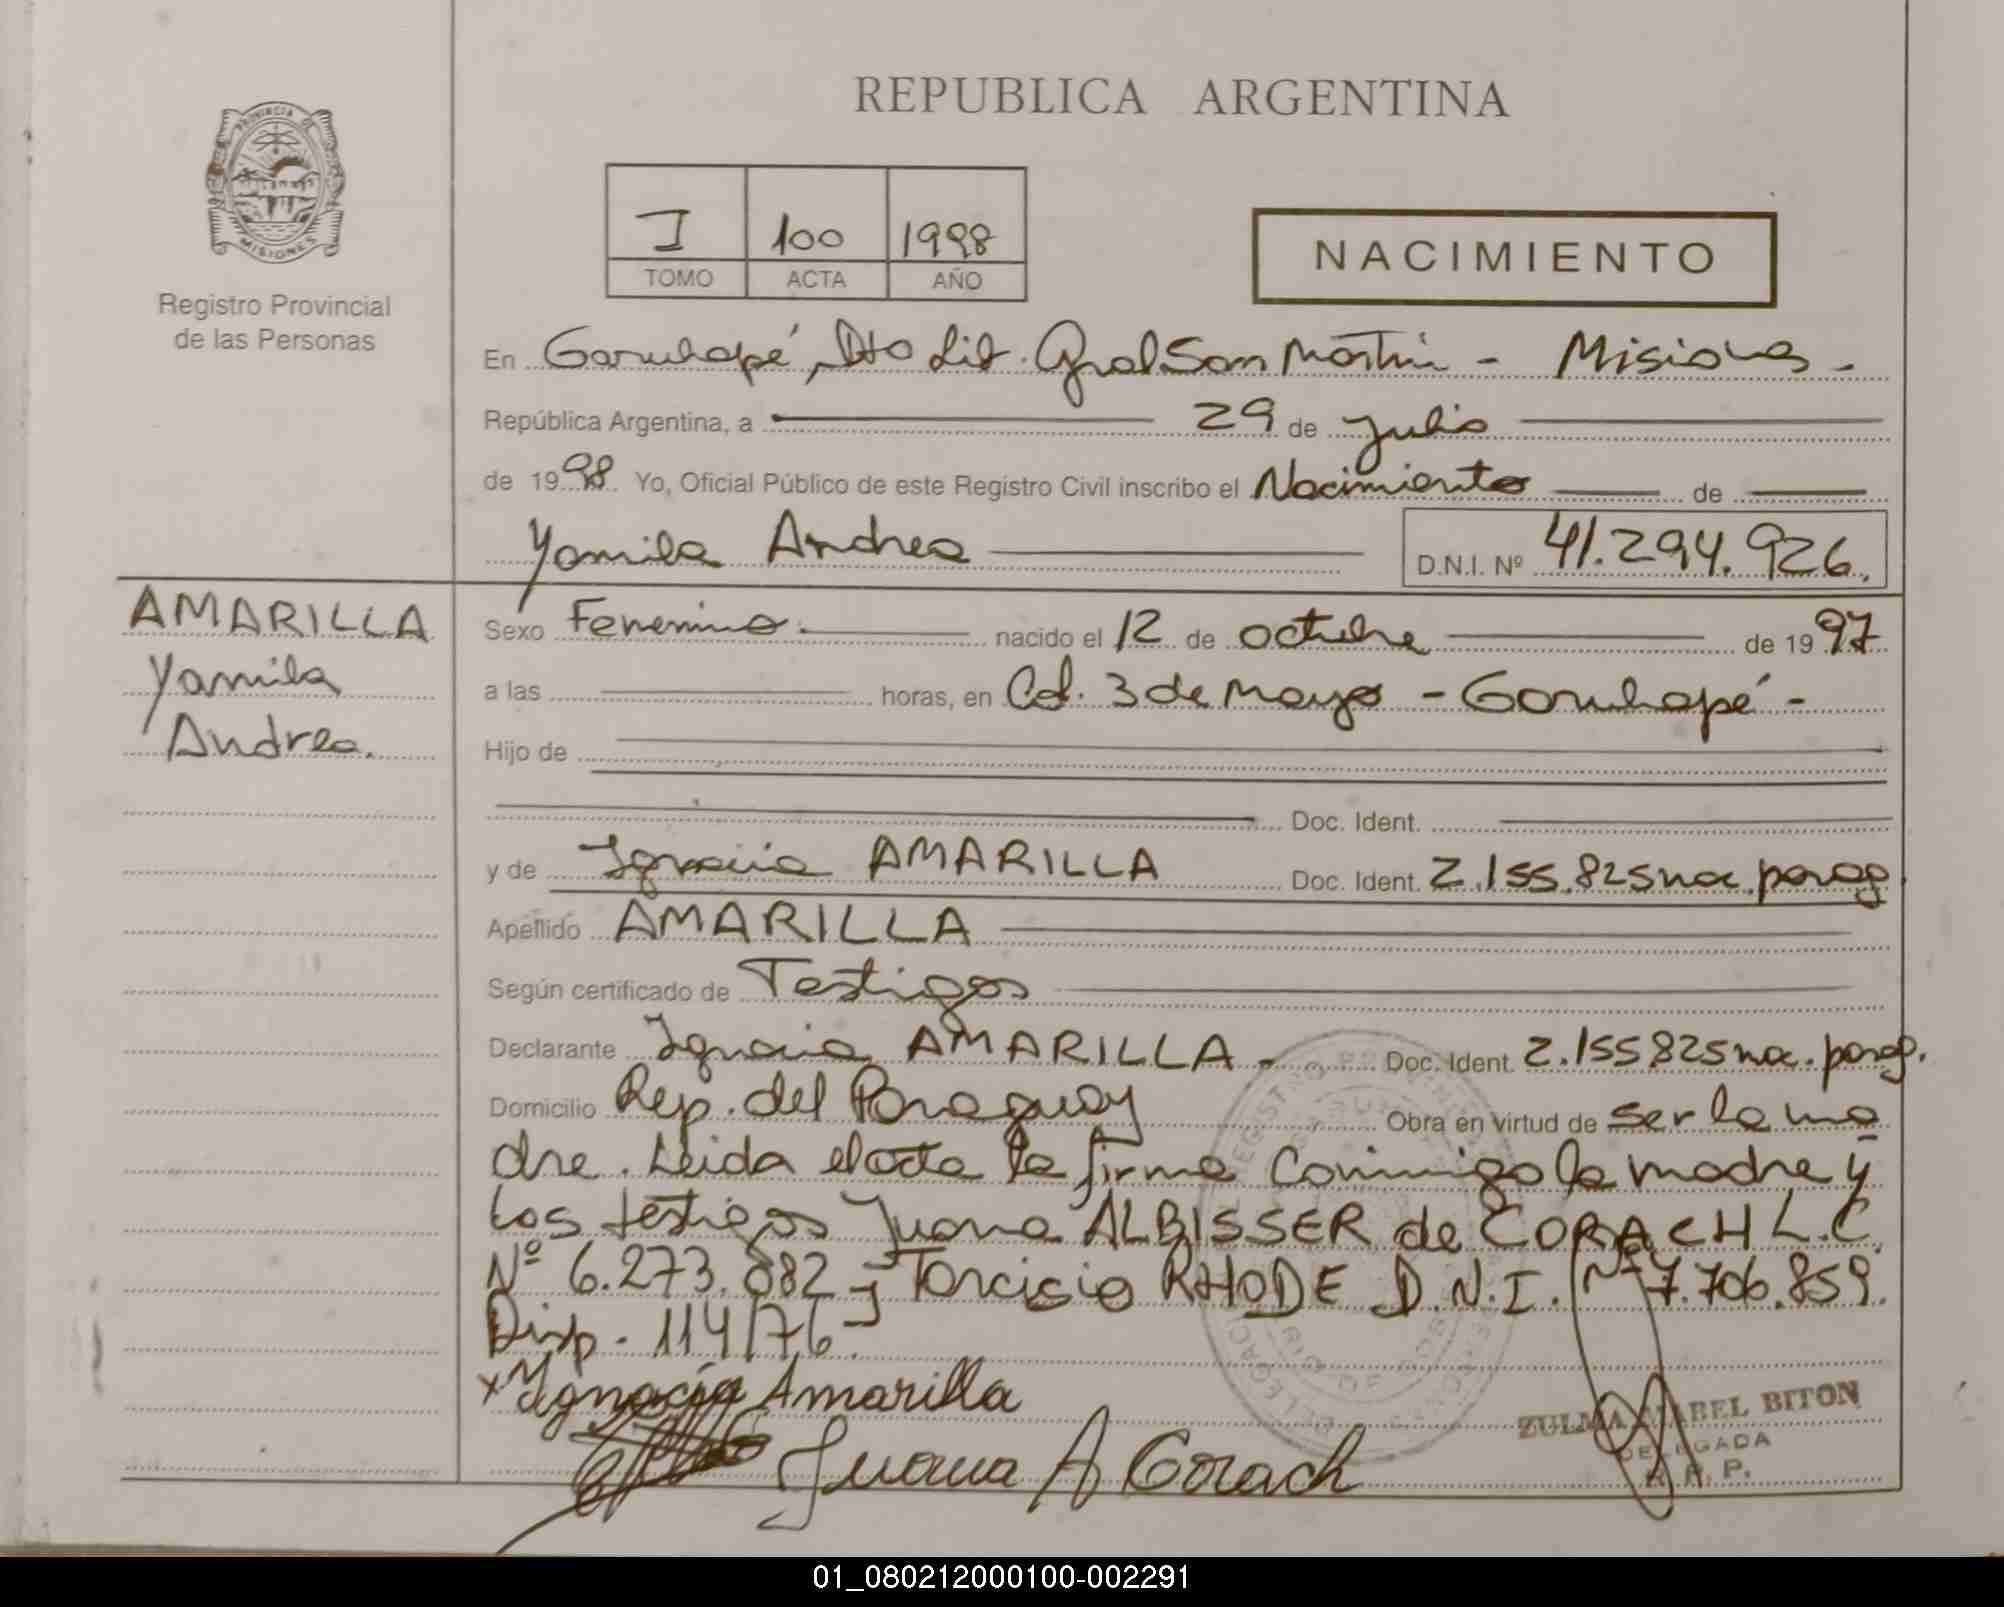 REPUBLICA ARGENTINA
PROVINCIA DE
MISIONES
Registro Provincial
de las Personas
I 100 1998
TOMO ACTA AÑO
NACIMIENTO
En Garuhapé, Dto Lib. Gral San Martín - Misiones -
República Argentina, a 29 de Julio
de 1998 Yo, Oficial Público de este Registro Civil inscribo el Nacimiento de
Yamila Andrea D.N.I. Nº 41.294.926.
AMARILLA
Yamila
Andrea.
Sexo Femenino. nacido el 12 de octubre de 1997
a las horas, en Col. 3 de Mayo - Garuhapé -
Hijo de
Doc. Ident.
y de Ignacia AMARILLA Doc. Ident. 2.155.825 nac. parag
Apellido AMARILLA
Según certificado de Testigos
Declarante Ignacia AMARILLA. Doc. Ident. 2.155825 nac. parag.
Domicilio Rep. del Paraguay Obra en virtud de ser la ma
dre. Leida el acta la firma conmigo la madre y
los testigos Juana ALBISSER de CORACH L.C.
Nº 6.273.082 y Tarcisio RHODE D.N.I. Nº 7.706.859.
Disp. 114/76.
x Ignacia Amarilla
Juana A Corach
ZULMA MABEL BITON
DELEGADA
R. P. P.
01_080212000100-002291